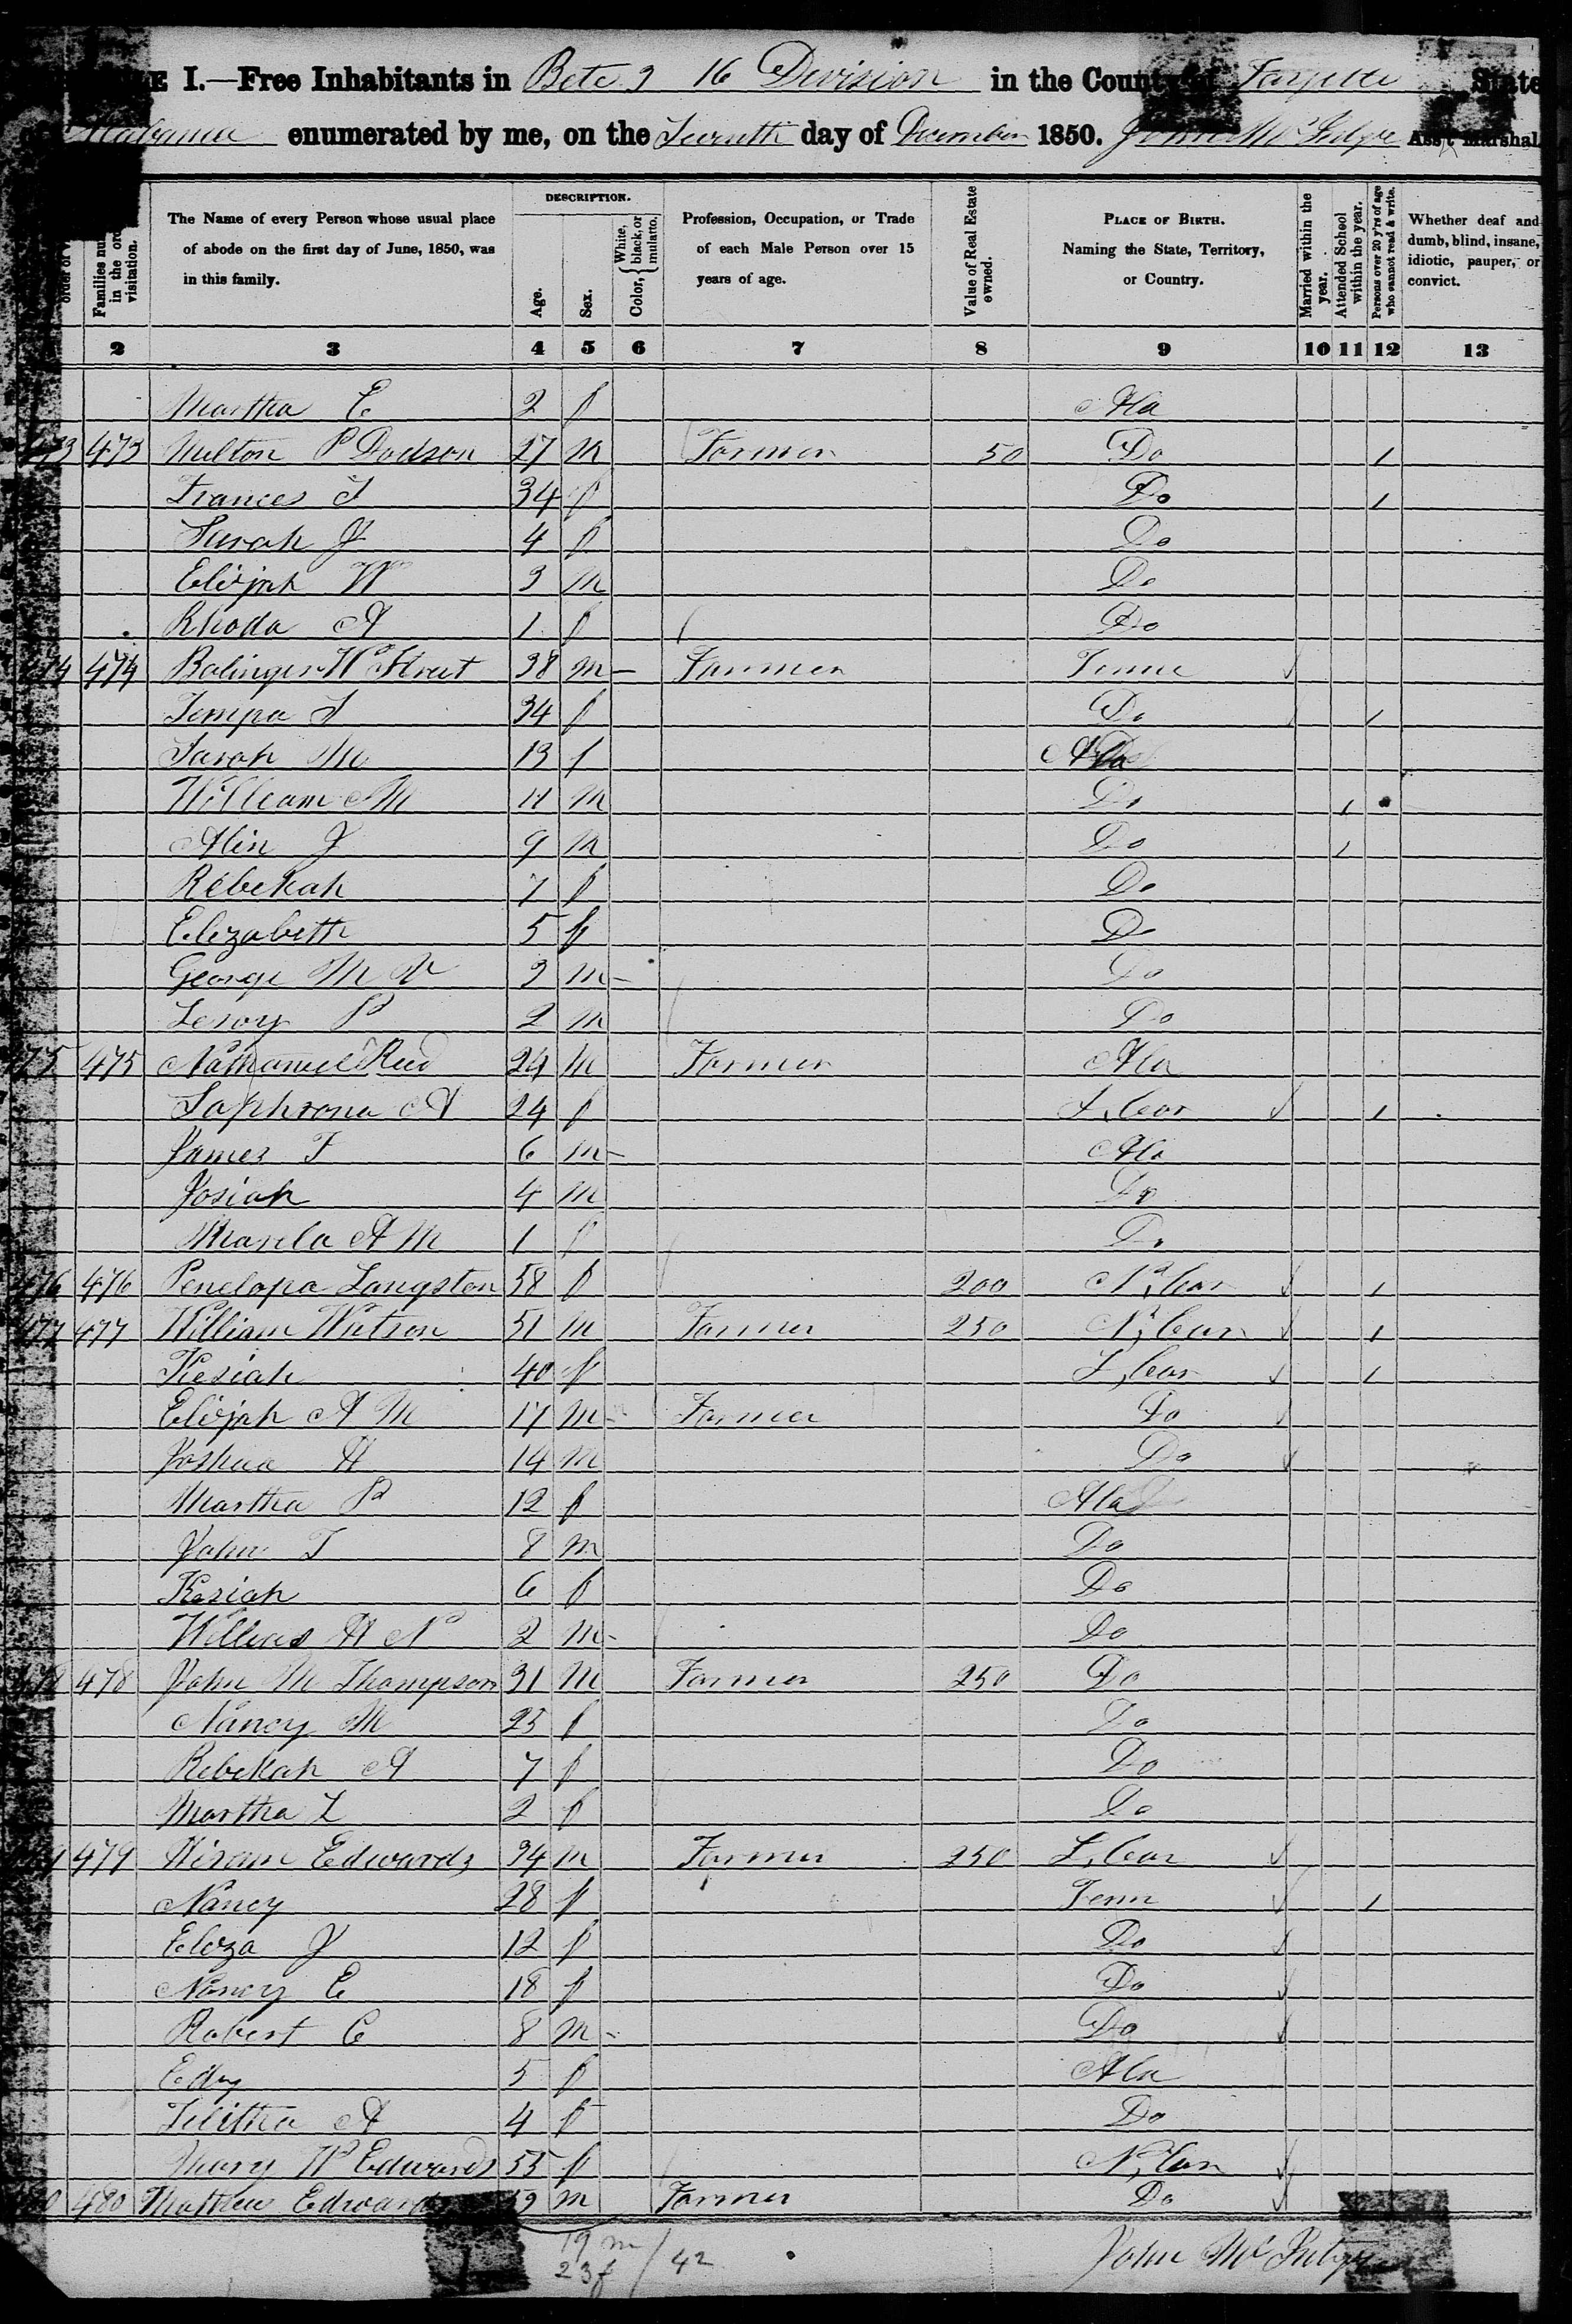 E I.—Free Inhabitants in Bete 9 16 Division in the County of Fayette State
Alabama enumerated by me, on the Seventh day of December 1850. John Ass't Marshal.
order of
Families num in the ord visitation.
The Name of every Person whose usual place of abode on the first day of June, 1850, was in this family.
DESCRIPTION.
Age.
Sex.
Color, { White, black, or mulatto.
Profession, Occupation, or Trade of each Male Person over 15 years of age.
Value of Real Estate owned.
PLACE OF BIRTH. Naming the State, Territory, or Country.
Married within the year.
Attended School within the year.
Persons over 20 y'rs of age who cannot read & write.
Whether deaf and dumb, blind, insane, idiotic, pauper, or convict.
2 3 4 5 6 7 8 9 10 11 12 13
Martha E 2 f Ala
473 473 Milton P Dodson 27 m Farmer 50 Do /
Frances 34 f Do /
Sarah J 4 f Do
Elijah W 3 m Do
Rhoda A 1 f Do
474 474 Balinger W Street 38 m Farmer Tenne
Tempa S 34 f Do /
Sarah M 13 f Ala
William M 11 m Do /
Alin J 9 m Do /
Rebekah 7 f Do
Elizabeth 5 f Do
George M V 3 m Do
Leroy P 2 m Do
475 475 Nathaniel Reed 24 m Farmer Ala
Saphrona A 24 f S, Car /
James F 6 m Ala
Josiah 4 m Do
A M 1 f Do
476 476 Penelopa Langston 58 f 200 N, Car /
477 477 William Watson 51 m Farmer 250 N, Car /
Kesiah 40 f S, Car /
Elijah A M 17 m Farmer Do
Joshua H 14 m Do
Martha P 12 f Ala
John T 8 m Do
Kesiah 6 f Do
H N 2 m Do
478 478 John M Thompson 31 m Farmer 250 Do
Nancy M 25 f Do
Rebekah A 7 f Do
Martha L 2 f Do
479 Hiram Edwards 34 m Farmer 250 S, Car
Nancy 28 f Tenn /
Eliza J 12 f Do
Nancy E 18 f Do
Robert C 8 m Do
Edny 5 f Ala
Telitha A 4 f Do
Mary W Edwards 55 f N, Car
480 Matthew Edwards 59 m Farmer Do
19 m
23 f / 42
John